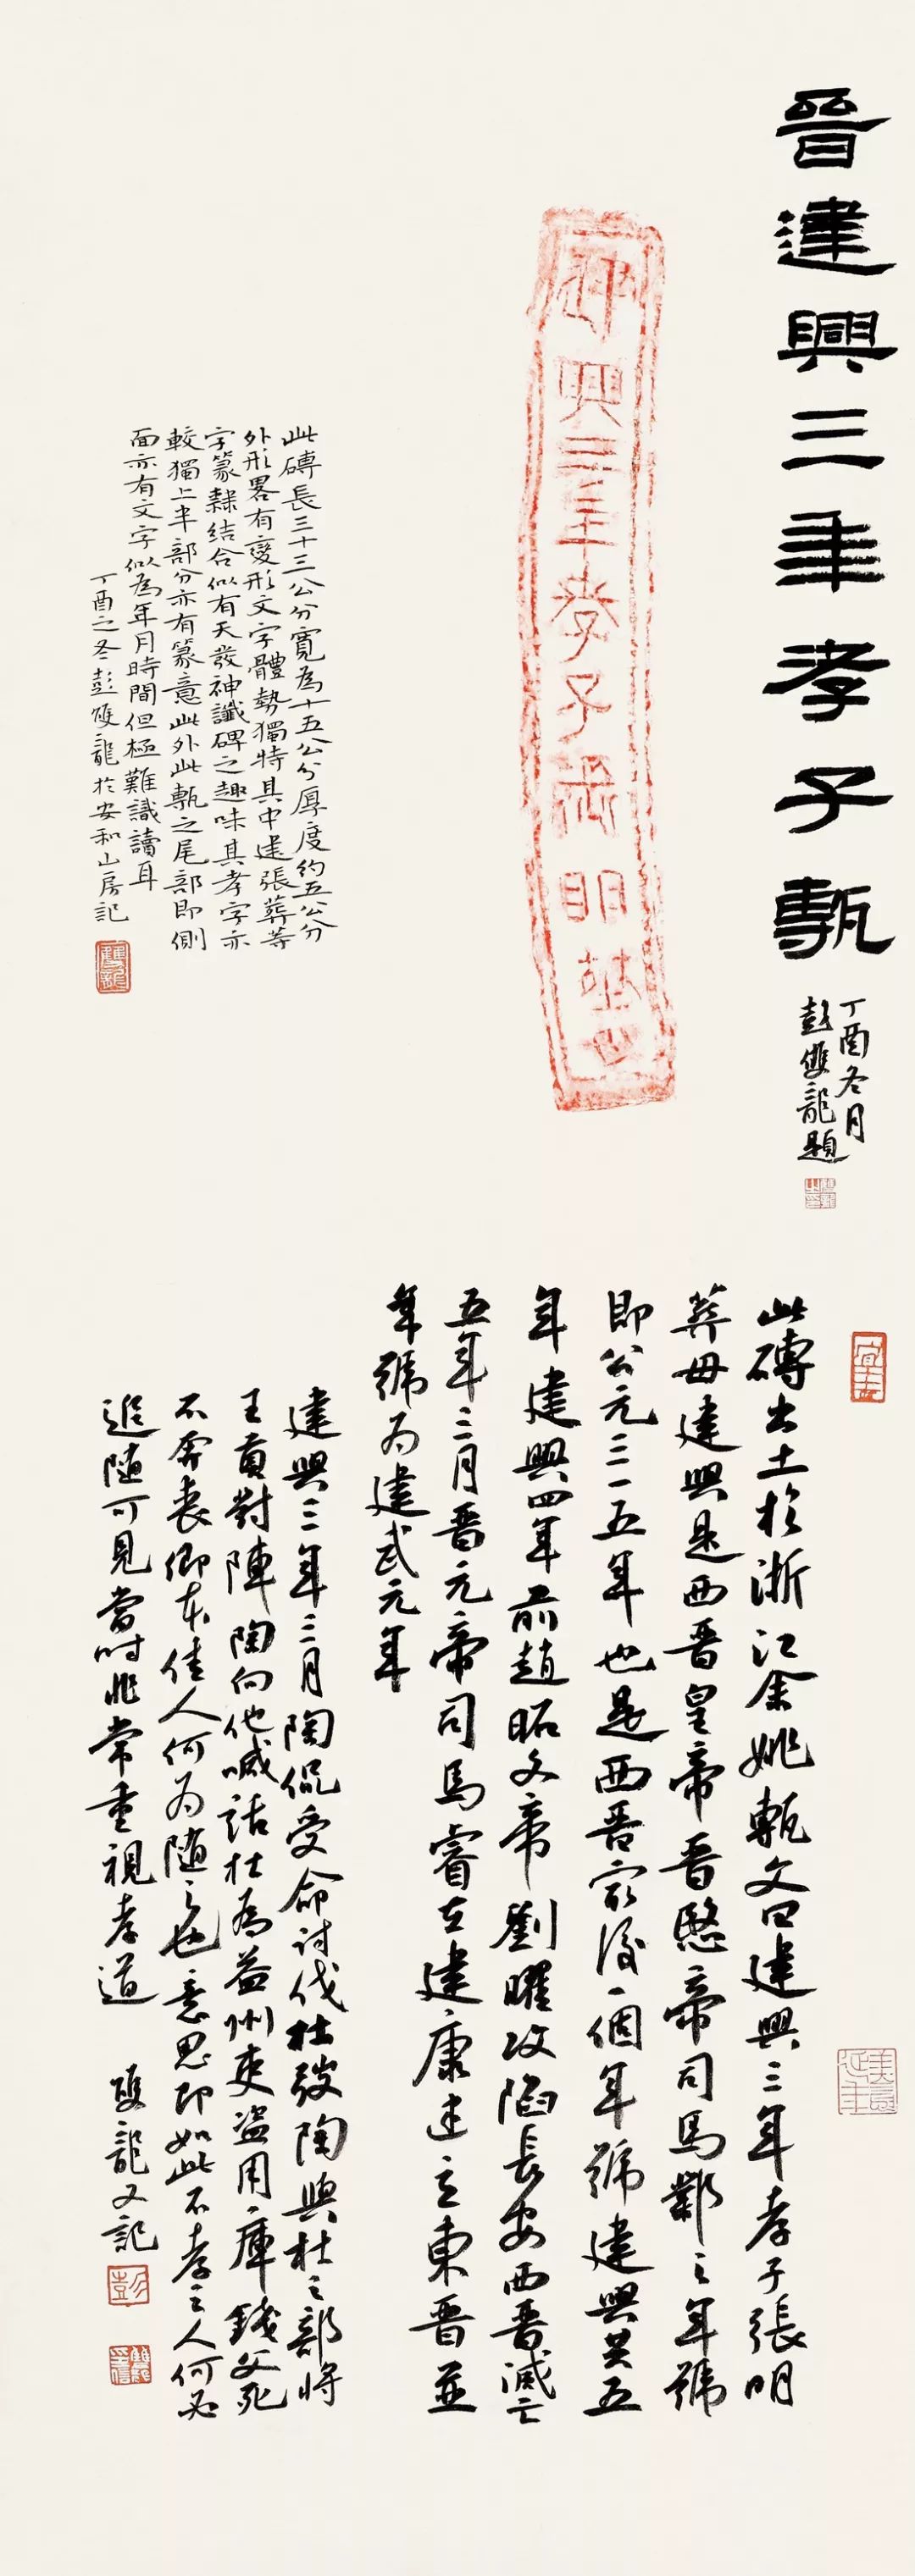 晉建興三年孝子甎
丁酉冬月
彭雙龍題
興三年孝子張明葬
此磚長三十三公分寬為十五公分厚度約五公分
外形畧有變形文字體勢獨特其中建張葬等
字篆隸結合似有天發神讖碑之趣味其孝字亦
較獨上半部分亦有篆意此外此甎之尾部即側
面亦有文字似為年月時間但極難識讀耳
丁酉之冬彭雙龍於安和山房記
雙龍
此磚出土於浙江余姚甎文曰建興三年孝子張明
葬母建興是西晉皇帝晉愍帝司馬鄴之年號
即公元三一五年也是西晉最後一個年號建興共五
年建興四年前趙昭文帝劉曜攻陷長安西晉滅亡
五年三月晉元帝司馬睿在建康建立東晉並
年號為建武元年
建興三年三月陶侃受命討伐杜弢陶與杜之部將
王貢對陣陶向他喊話杜為益州吏盜用庫錢父死
不奔喪卿本佳人何為隨之也意思即如此不孝之人何必
追隨可見當時非常重視孝道
雙龍又記
彭